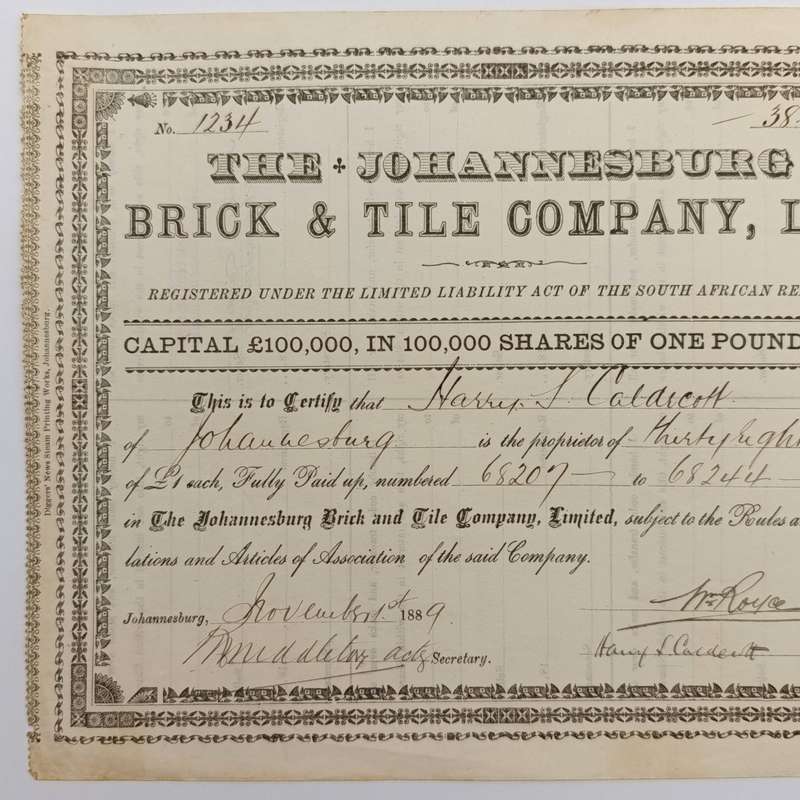 No. 1234 — 38
THE JOHANNESBURG
BRICK & TILE COMPANY, L
REGISTERED UNDER THE LIMITED LIABILITY ACT OF THE SOUTH AFRICAN RE
CAPITAL £100,000, IN 100,000 SHARES OF ONE POUND
This is to Certify that Harry S. Caldecott
of Johannesburg is the proprietor of thirty eight
of £1 each, Fully Paid up, numbered 68207 — to 68244 —
in The Johannesburg Brick and Tile Company, Limited, subject to the Rules a
lations and Articles of Association of the said Company.
Johannesburg, November 1st 1889.
Wm Royce
Middleton actg Secretary.
Harry S Caldecott
Diggers' News Steam Printing Works, Johannesburg.